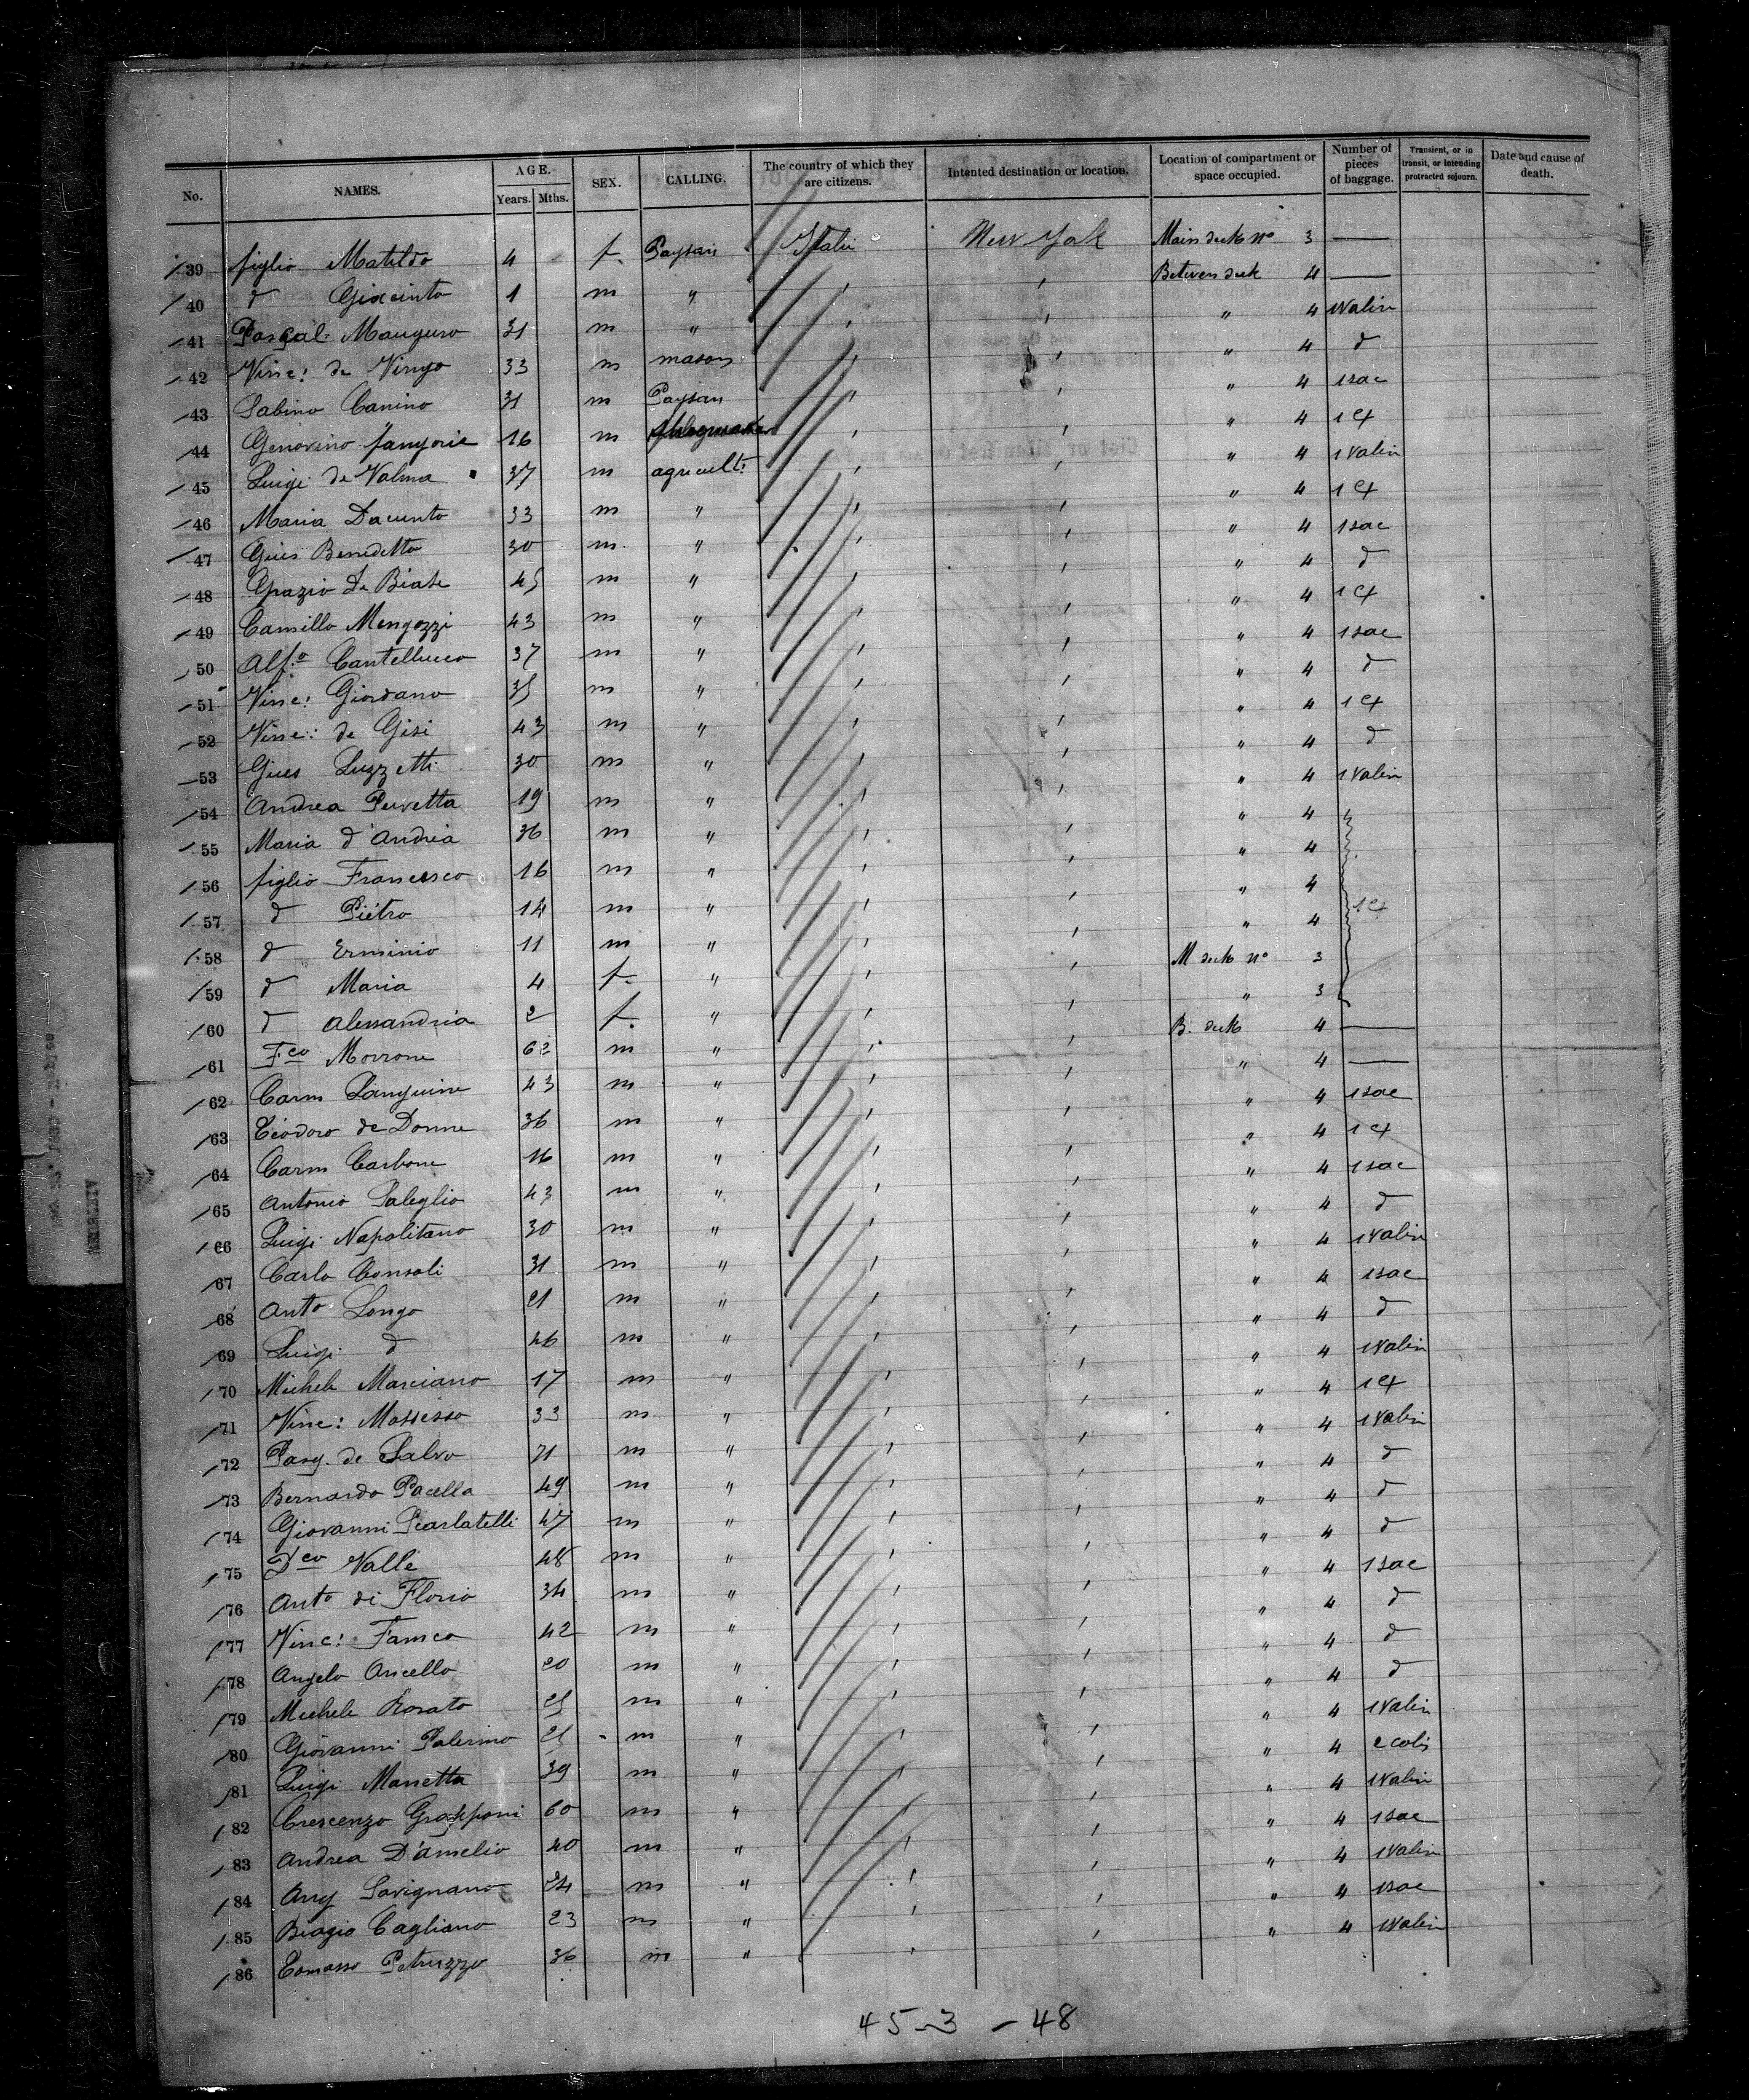 No. NAMES. AGE. Years. Mths. SEX. CALLING. The country of which they are citizens. Intented destination or location. Location of compartment or space occupied. Number of pieces of baggage. Transient, or in transit, or intending protracted sejourn. Date and cause of death.
39 figlio Matilda 4 f. Paysan Italie New York Main deck no 3 —
40 d Giacinto 1 m " ' ' Between deck 4 —
41 Pasqal. Manguso 31 m " ' ' " 4 1 Valin
42 Vinc: de Vingo 33 m mason ' ' " 4 d
43 Sabino Canino 31 m Paysan ' ' " 4 1 sac
44 Genovino 16 m ' ' " 4 1 Cx
45 Luigi de Valma 37 m agricult: ' ' " 4 1 Valin
46 Maria Dacunto 33 m " ' ' " 4 1 Cx
47 Gius Benedetto 30 m " ' ' " 4 1 sac
48 Grazio de Biase 45 m " ' ' " 4 d
49 Camillo Mengozzi 43 m " ' ' " 4 1 Cx
50 Alf.o Cantellucco 37 m " ' ' " 4 1 sac
51 Vinc: Giordano 35 m " ' ' " 4 d
52 Vinc: de Gisi 43 m " ' ' " 4 1 Cx
53 Gius Luzzetti 30 m " ' ' " 4 d
54 Andrea Peivetta 19 m " ' ' " 4 1 Valin
55 Maria d'Andria 36 m " ' ' " 4
56 figlio Francesco 16 m " ' ' " 4
57 d Piétro 14 m " ' ' " 4 1 Cx
58 d Erminio 11 m " ' ' " 4
59 d Maria 4 f. " ' ' M deck no 3
60 d Alessandria 2 f. " ' ' " 3
61 Fco Morrone 62 m " ' ' B. deck 4 —
62 Carm Sanguine 43 m " ' ' " 4 —
63 Téodoro de Donne 36 m " ' ' " 4 1 sac
64 Carm Carbone 16 m " ' ' " 4 1 Cx
65 Antonio Saleglio 43 m " ' ' " 4 1 sac
66 Luigi Napolitano 30 m " ' ' " 4 d
67 Carlo Consoli 31 m " ' ' " 4 1 Valin
68 Anto Longo 21 m " ' ' " 4 1 sac
69 Luigi d 46 m " ' ' " 4 d
70 Michele Marciano 17 m " ' ' " 4 1 Valin
71 Vinc: Massesso 33 m " ' ' " 4 1 Cx
72 Pasq. de Salvo 71 m " ' ' " 4 1 Valin
73 Bernardo Pacella 49 m " ' ' " 4 d
74 Giovanni Scarlatelli 47 m " ' ' " 4 d
75 Dco Valle 48 m " ' ' " 4 d
76 Anto di Florio 34 m " ' ' " 4 1 sac
77 Vinc: Famea 42 m " ' ' " 4 d
78 Angelo Aucello 20 m " ' ' " 4 d
79 Michele Rosato 25 m " ' ' " 4 d
80 Giovanni Palermo 25 m " ' ' " 4 1 Valin
81 Luigi Manetta 39 m " ' ' " 4 2 colis
82 Crescenzo Grapponi 60 m " ' ' " 4 1 Valin
83 Andrea D'amelio 40 m " ' ' " 4 1 sac
84 Ang Savignano 24 m " ' ' " 4 1 Valin
85 Biagio Cagliano 23 m " ' ' " 4 1 sac
86 Tomasso Petruzzo 36 m " ' ' " 4 1 Valin
45-3 - 48